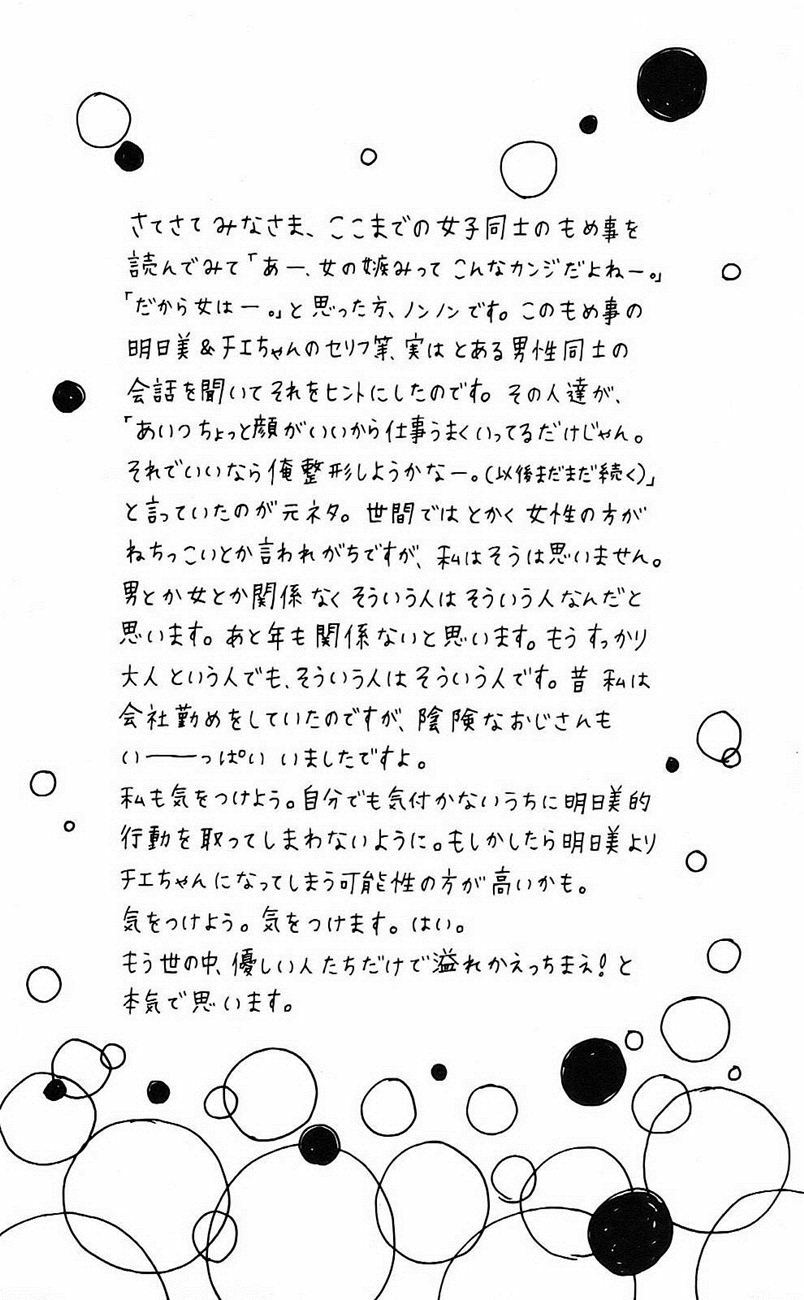 さてさてみなさま、ここまでの女子同士のもめ事を
読んでみて「あー、女の嫉みってこんなカンジだよねー。」
「だから女はー。」と思った方、ノンノンです。このもめ事の
明日美&チエちゃんのセリフ等、実はとある男性同士の
会話を聞いてそれをヒントにしたのです。その人達が、
「あいつちょっと顔がいいから仕事うまくいってるだけじゃん。
それでいいなら俺整形しようかなー。(以後まだまだ続く)」
と言っていたのが元ネタ。世間ではとかく女性の方が
ねちっこいとか言われがちですが、私はそうは思いません。
男とか女とか関係なくそういう人はそういう人なんだと
思います。あと年も関係ないと思います。もうすっかり
大人という人でも、そういう人はそういう人です。昔私は
会社勤めをしていたのですが、陰険なおじさんも
い――っぱいいましたですよ。
私も気をつけよう。自分でも気付かないうちに明日美的
行動を取ってしまわないように。もしかしたら明日美より
チエちゃんになってしまう可能性の方が高いかも。
気をつけよう。気をつけます。はい。
もう世の中、優しい人たちだけで溢れかえっちまえ!と
本気で思います。